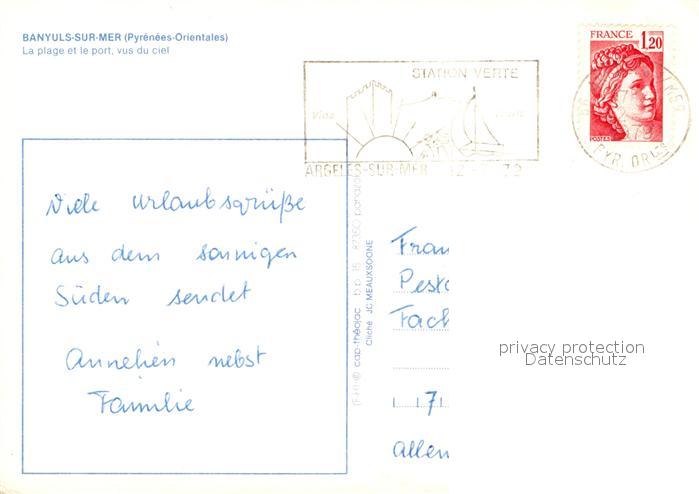 BANYULS-SUR-MER (Pyrénées-Orientales)
La plage et le port, vus du ciel
STATION VERTE
ARGELES-SUR-MER
FRANCE
1,20
POSTES
PYR. ORLES
Viele Urlaubsgrüße
aus dem sonnigen
Süden sendet
Annchen nebst
Familie
cap-théojac b.p. 15 87350 panazol
Cliché JC MEAUXSOONE
Frau
Pesta
Fach
7
Allem
privacy protection
Datenschutz